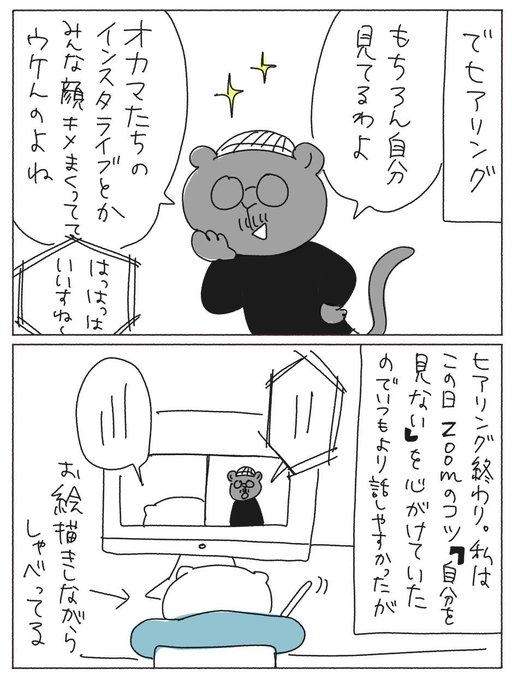 でヒアリング
もちろん自分
見てるわよ
オカマたちの
インスタライブとか
みんな顔キメまくってて
ウケんのよね
はっはっは
いいすね〜
ヒアリング終わり。私は
この日Zoomのコツ「自分を
見ない」を心がけていた
のでいつもより話しやすかったが
お絵描きしながら
しゃべってる